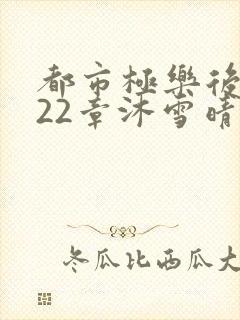 都市極樂後
22章沐雪晴
冬瓜比西瓜大